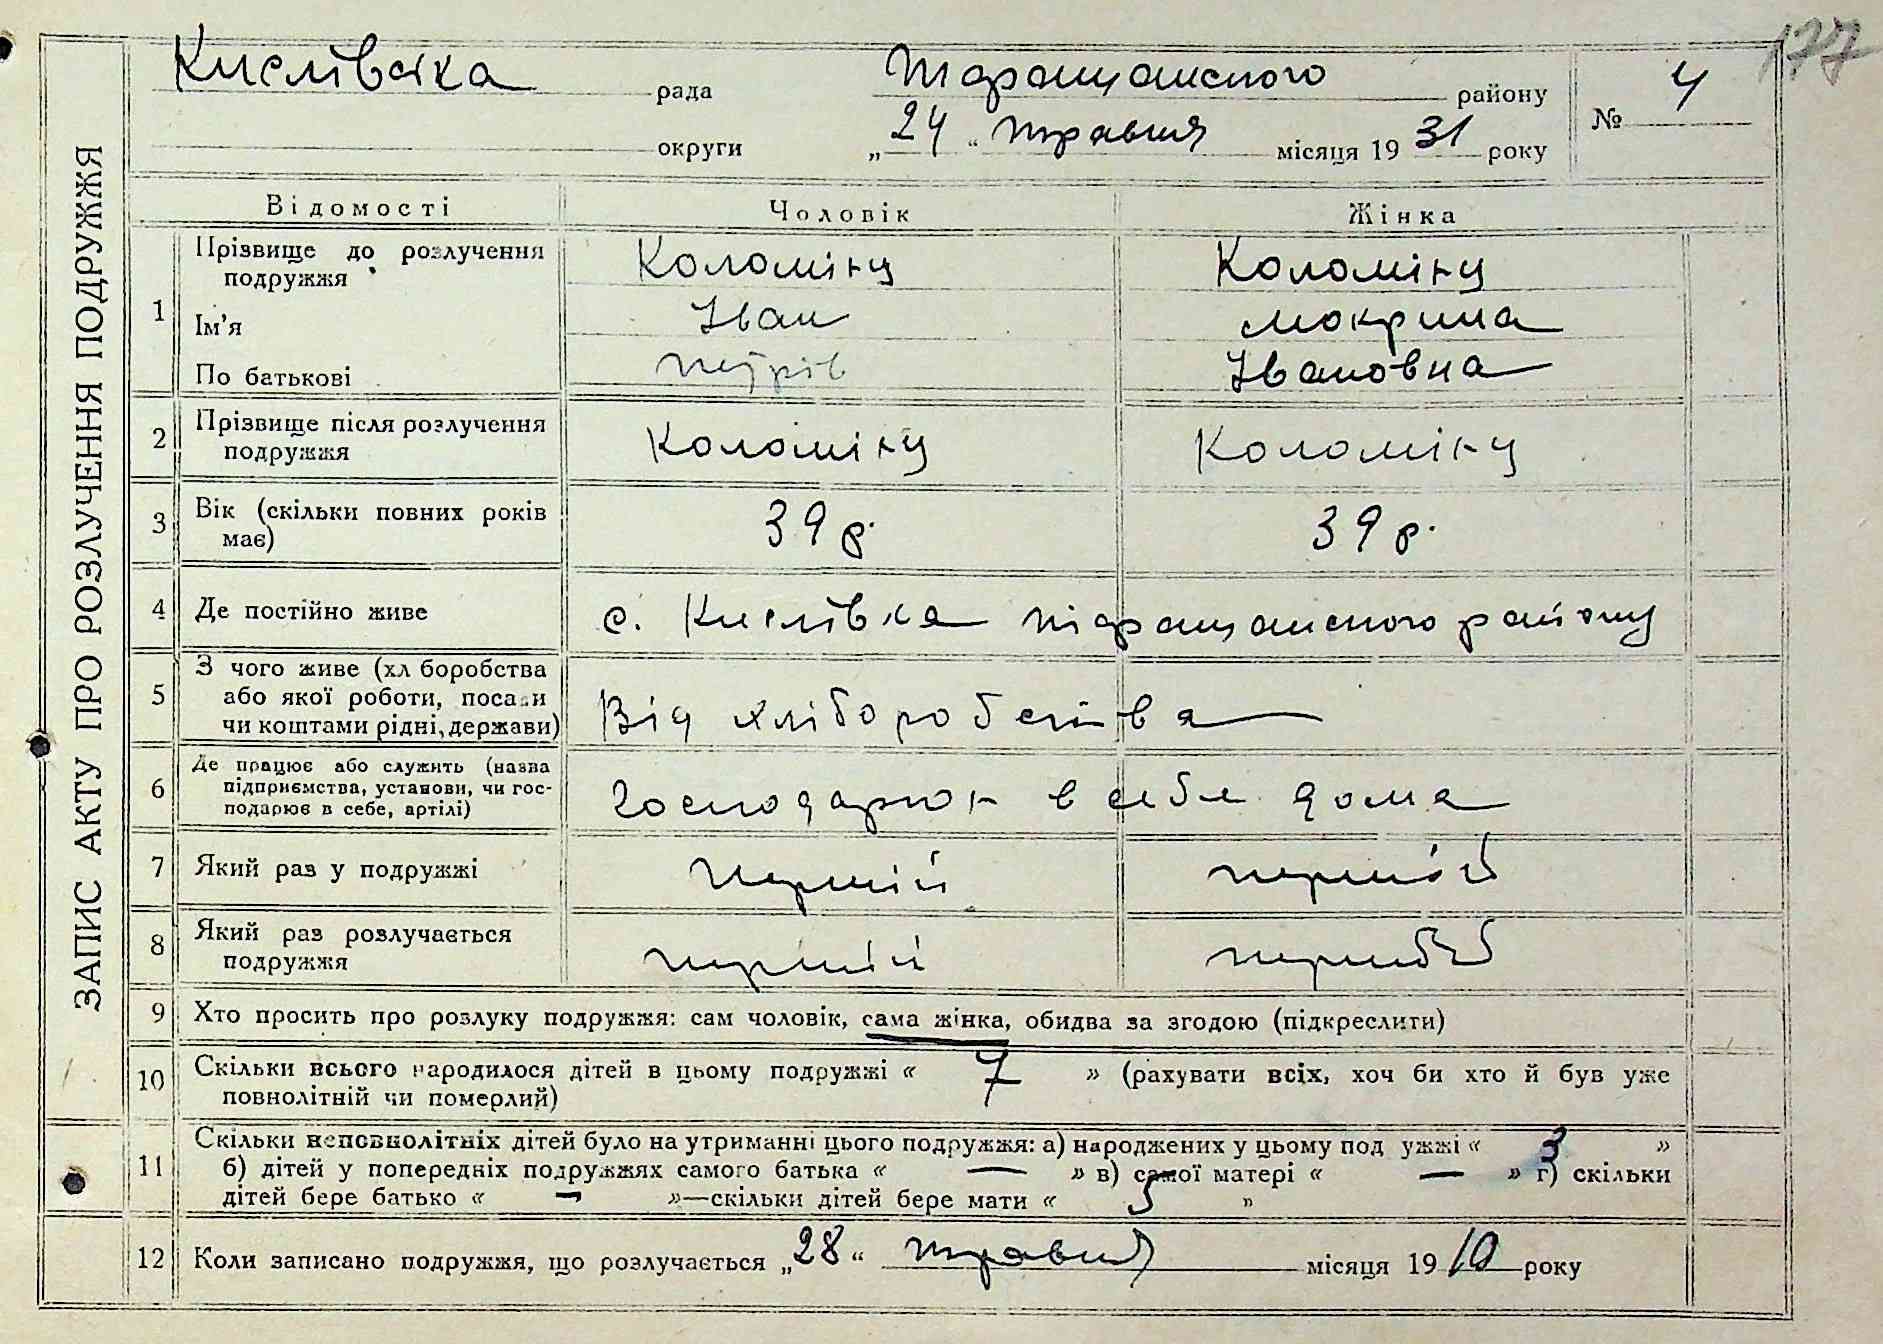 177
Кислівська рада Таращанського району № 4
округи „24“ травня місяця 1931 року
ЗАПИС АКТУ ПРО РОЗЛУЧЕННЯ ПОДРУЖЖЯ
Відомості Чоловік Жінка
1 Прізвище до розлучення подружжя Коломієць Коломієць
Ім'я Іван Мокрина
По батькові Петрів Івановна
2 Прізвище після розлучення подружжя Коломієць Коломієць
3 Вік (скільки повних років має) 39 р. 39 р.
4 Де постійно живе с. Кислівка Таращанського району
5 З чого живе (хл боробства
або якої роботи, посади
чи коштами рідні, держави) Від хліборобства
6 Де працює або служить (назва
підприємства, установи, чи гос-
подарює в себе, артілі) Господарює в себе дома
7 Який раз у подружжі перший перший
8 Який раз розлучається
подружжя перший перший
9 Хто просить про розлуку подружжя: сам чоловік, сама жінка, обидва за згодою (підкреслити)
10 Скільки всього народилося дітей в цьому подружжі « 7 » (рахувати всіх, хоч би хто й був уже
повнолітній чи померлий)
11 Скільки неповнолітніх дітей було на утриманні цього подружжя: а) народжених у цьому под ужжі « 3 »
б) дітей у попередніх подружжях самого батька « — » в) самої матері « — » г) скільки
дітей бере батько « — »—скільки дітей бере мати « »
12 Коли записано подружжя, що розлучається „28“ травня місяця 1910 року